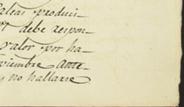 saleas produci-
rt debe respon-
valor por ha-
viembre ante-
y no hallarse